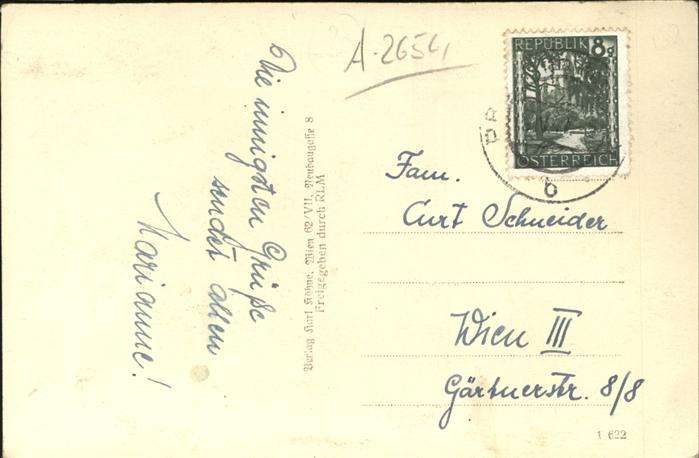 A-2654
REPUBLIK 8g
ÖSTERREICH
b
Die innigsten Grüße
sendet allen
Marianne!
Verlag Karl Kühne, Wien 62/VII, Neubaugasse 8
Freigegeben durch RLM
Fam.
Curt Schneider
Wien III
Gärtnerstr. 8/8
1 622